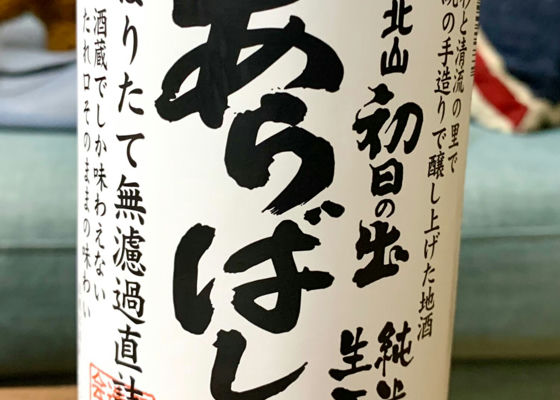 と清流の里で
の手造りで醸し上げた地酒
北山
初日の出
純米
生
あらばし
りたて無濾過直詰
酒蔵でしか味わえない
たれ口そのままの味わい